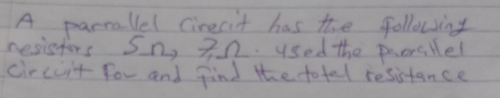 A parrallel cirecit has the following
resistors 5Ω, 7Ω. used the parrallel
circuit for and find the totel resistance